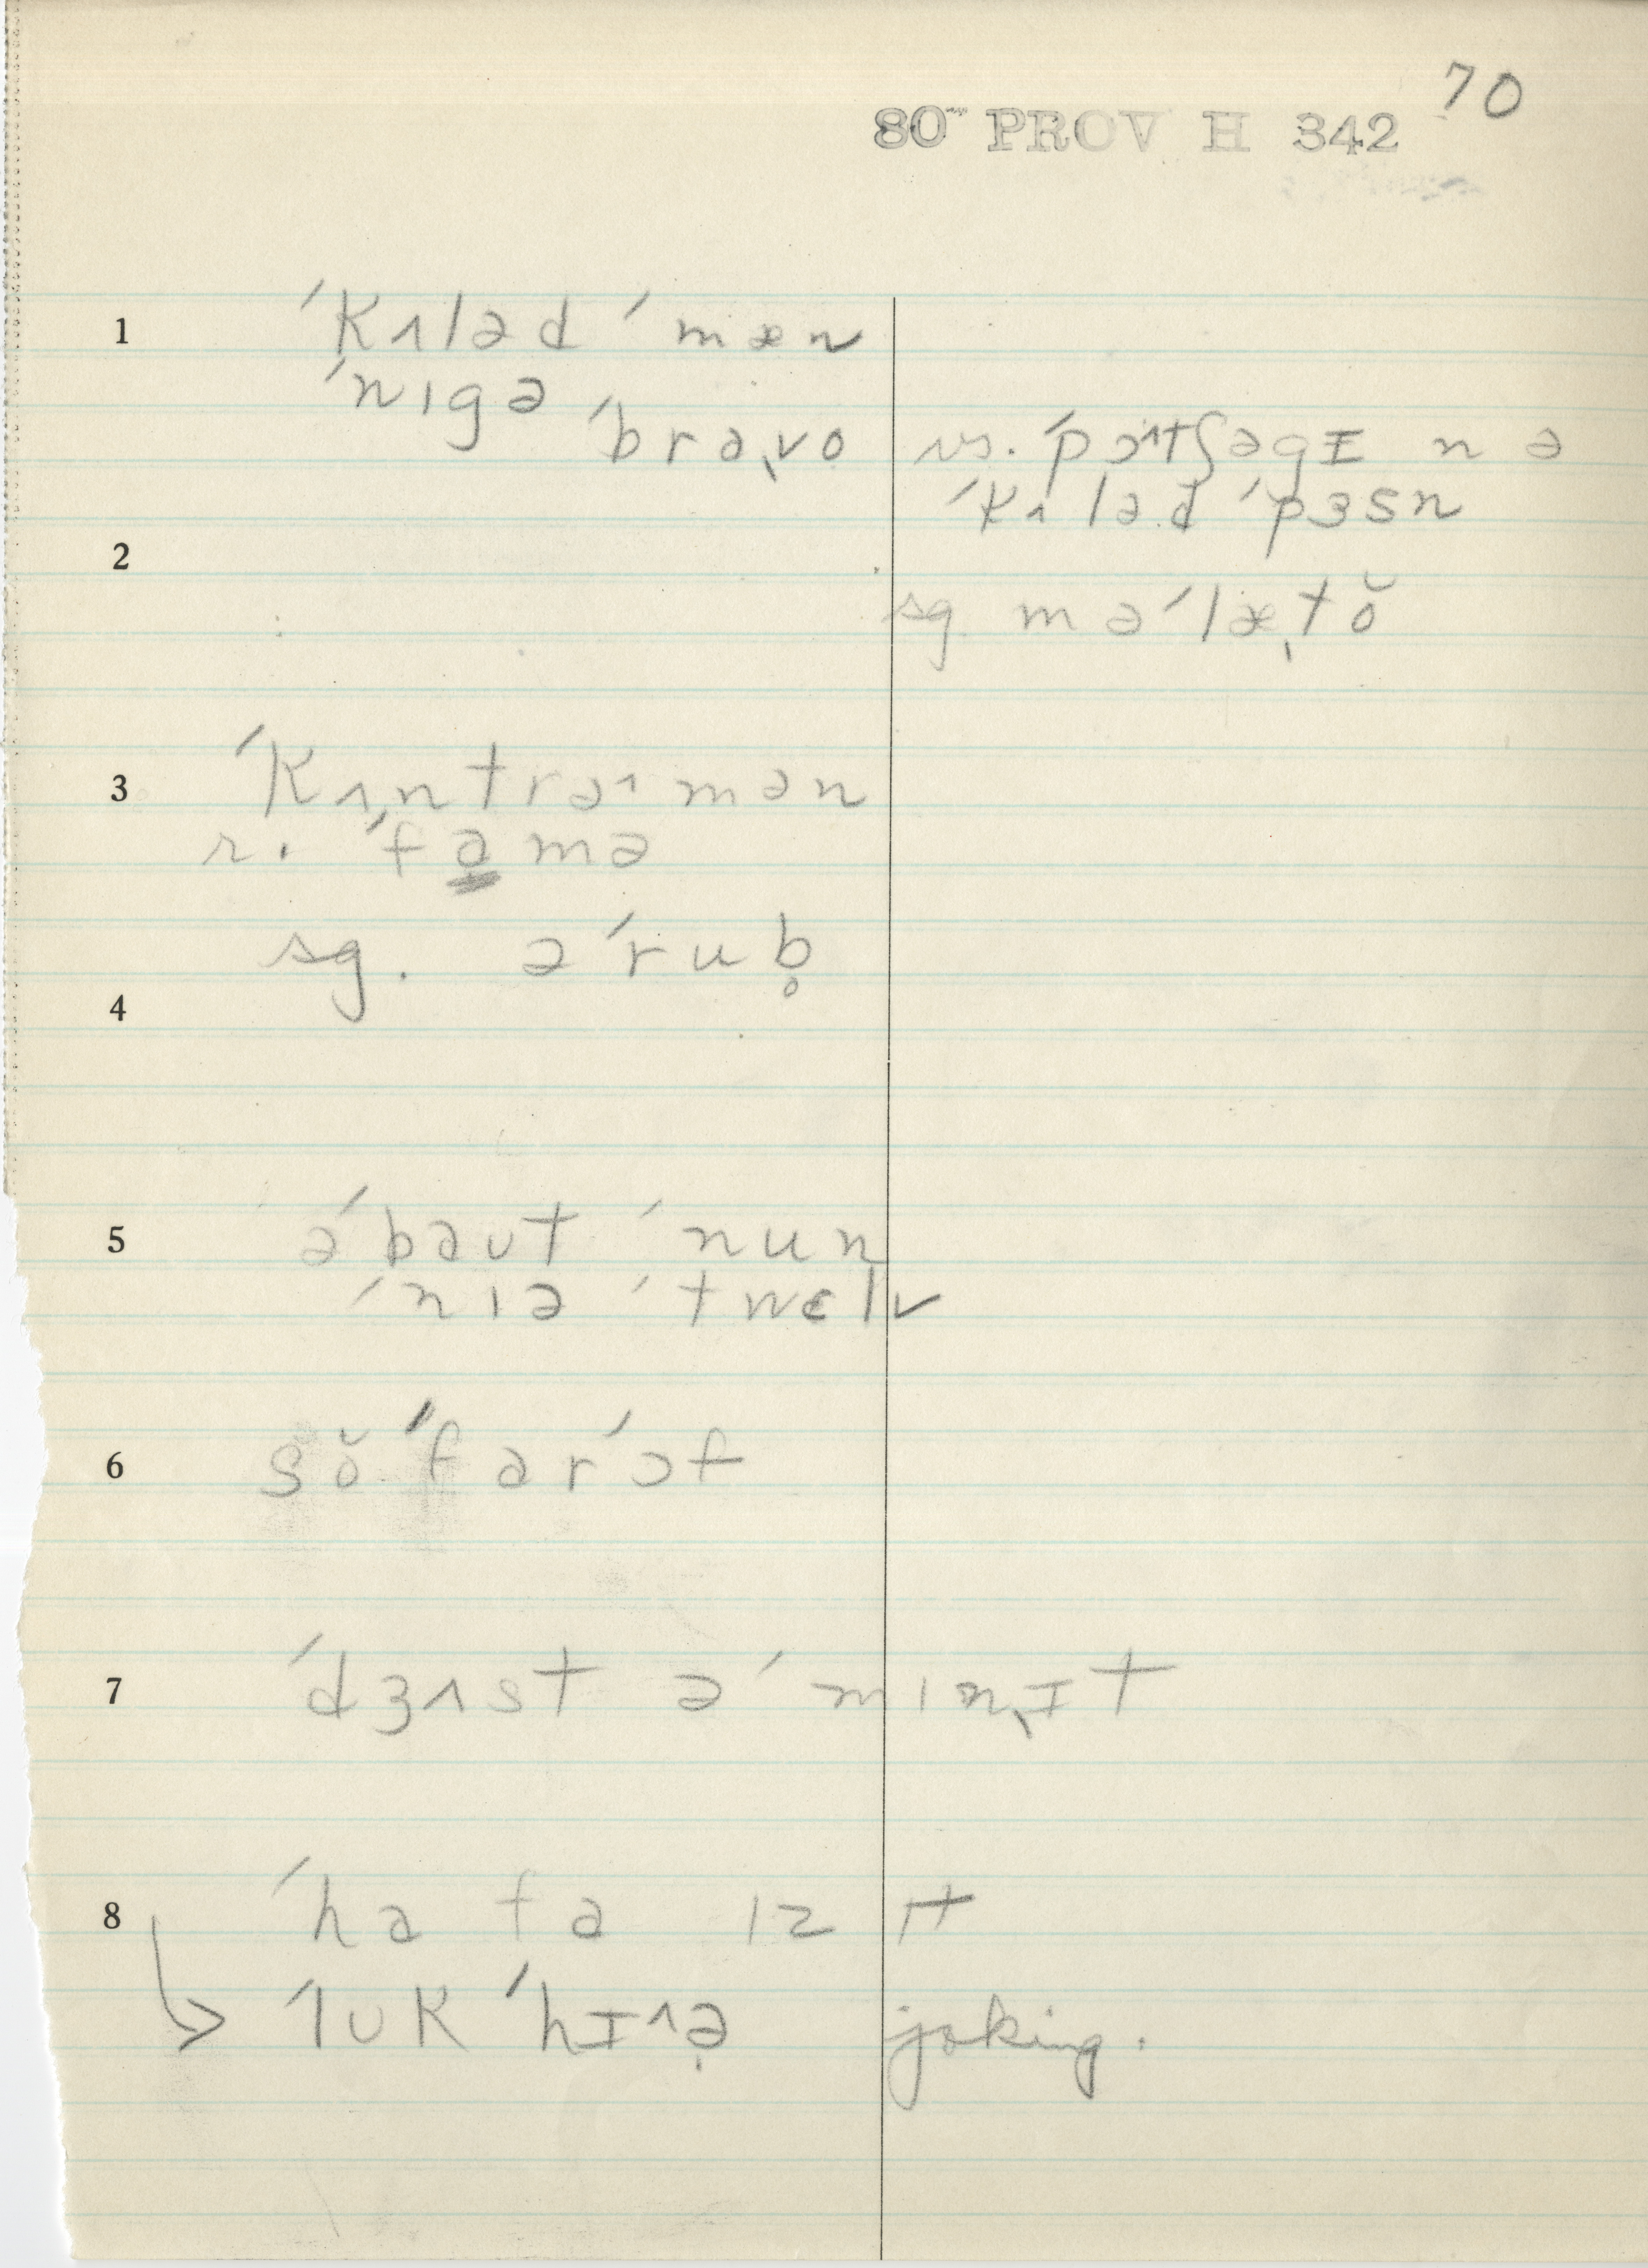 70
80 PROV H 342
1 ˈkʌləd ˈmæn
ˈnɪgə
ˈbraˌvo vs. ˈpɔʌtʃəgɪ n ə
ˈkʌləd ˈpɜsn
2
sg. məˈlæˌtŏ
3 ˈkʌˌntrəʌmən
r. ˈfa̱mə
sg. əˈrub̥
4
5 əˈbaʊt ˈnun
ˈnɪə ˈtwɛlv
6 sŏˈfarˈɔf
7 ˈdʒʌst əˈmɪnˌɪt
8 ˈha fa ɪz ɪt
ˈlʊk ˈhɪʌə̣ joking.